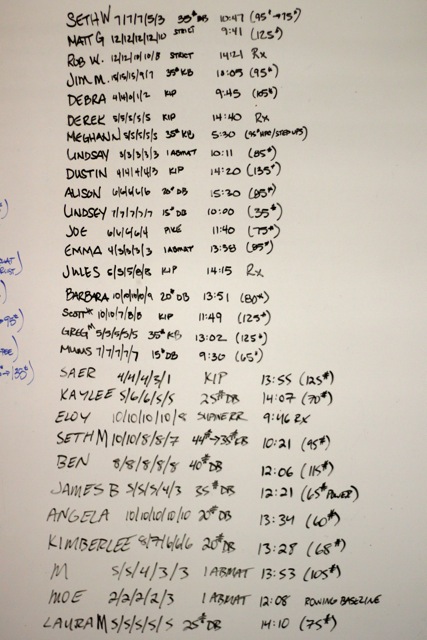 SETH W 7/7/7/5/3 35# DB 10:47 (95#→75#)
MATT G 12/12/12/12/10 STRICT 9:41 (125#)
ROB W. 12/12/10/10/8 STRICT 14:21 Rx
JIM M. 15/15/15/9/7 35# KB 10:05 (95#)
DEBRA 4/4/0/1/2 KIP 9:45 (105#)
DEREK 5/5/5/5/5 KIP 14:40 Rx
MEGHANN 5/5/5/5/5 35# KB 5:30
LINDSAY 3/3/3/3/3 1 ABMAT 10:11 (85#)
DUSTIN 4/4/4/4/3 KIP 14:20 (135#)
ALISON 6/6/6/6/6 20# DB 15:30 (85#)
LINDSEY 7/7/7/7/7 15# DB 10:00 (35#)
JOE 6/6/6/6/4 PIKE 11:40 (75#)
EMMA 4/3/3/3/3 1 ABMAT 13:38 (85#)
JULES 6/5/5/8/8 KIP 14:15 Rx
BARBARA 10/10/10/10/9 20# DB 13:51 (80#)
SCOTT* 10/10/7/8/8 KIP 11:49 (125#)
GREG M 5/5/5/5/5 35# KB 13:02 (125#)
MUMS 7/7/7/7/7 15# DB 9:30 (65#)
SAER 4/4/4/3/1 KIP 13:55 (125#)
KAYLEE 5/6/6/5/5 25# DB 14:07 (70#)
ELOY 10/10/10/10/8 9:46 RX
SETH M 10/10/8/8/7 44#→35# KB 10:21 (95#)
BEN 8/8/8/8/8 40# DB 12:06 (115#)
JAMES B 5/5/5/4/3 35# DB 12:21 (65# POWER)
ANGELA 10/10/10/10/10 20# DB 13:34 (60#)
KIMBERLEE 8/7/6/6/6 20# DB 13:28 (68#)
M 5/5/4/3/3 1 ABMAT 13:53 (105#)
MOE 2/2/2/2/3 1 ABMAT 12:08 ROWING BASELINE
LAURA M 5/5/5/5/5 25# DB 14:10 (75#)